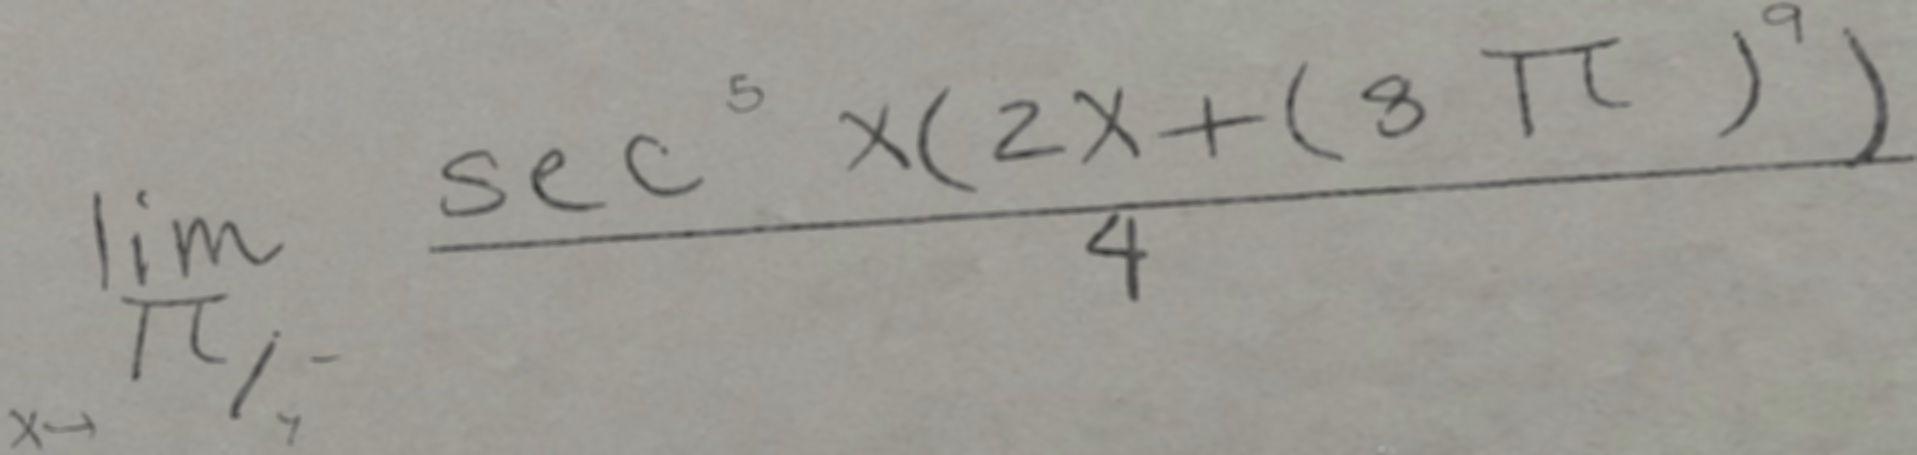 lim x→π/4⁻ sec⁵ x(2x+(8π)⁹)/4